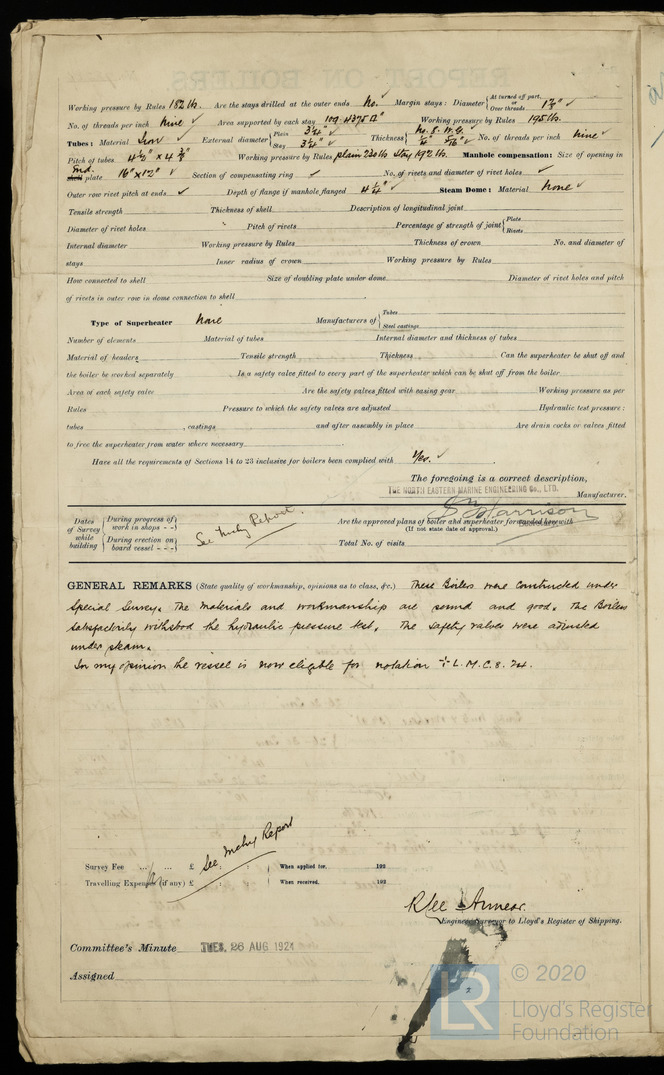 Working pressure by Rules 182 lbs. Are the stays drilled at the outer ends No. Margin stays: Diameter { At turned off part, or Over threads 1 7/8" ✓
No. of threads per inch Nine ✓ Area supported by each stay 109.4375 □" Working pressure by Rules 195 lbs.
Tubes: Material Iron ✓ External diameter { Plain 3 1/4" ✓ Stay 3 1/4" ✓ Thickness { No. 8. W.G. 1/4" 5/16" ✓ No. of threads per inch nine ✓
Pitch of tubes 4 1/2" x 4 3/8" Working pressure by Rules plain 230 lbs Stay 192 lbs. Manhole compensation: Size of opening in
End shell plate 16" x 12" ✓ Section of compensating ring ✓ No. of rivets and diameter of rivet holes ✓
Outer row rivet pitch at ends ✓ Depth of flange if manhole flanged 4 1/4" ✓ Steam Dome: Material None ✓
Tensile strength Thickness of shell Description of longitudinal joint
Diameter of rivet holes Pitch of rivets Percentage of strength of joint { Plate Rivets
Internal diameter Working pressure by Rules Thickness of crown No. and diameter of
stays Inner radius of crown Working pressure by Rules
How connected to shell Size of doubling plate under dome Diameter of rivet holes and pitch
of rivets in outer row in dome connection to shell
Type of Superheater None Manufacturers of { Tubes Steel castings
Number of elements Material of tubes Internal diameter and thickness of tubes
Material of headers Tensile strength Thickness Can the superheater be shut off and
the boiler be worked separately Is a safety valve fitted to every part of the superheater which can be shut off from the boiler
Area of each safety valve Are the safety valves fitted with easing gear Working pressure as per
Rules Pressure to which the safety valves are adjusted Hydraulic test pressure:
tubes , castings and after assembly in place Are drain cocks or valves fitted
to free the superheater from water where necessary
Have all the requirements of Sections 14 to 23 inclusive for boilers been complied with Yes. ✓
The foregoing is a correct description,
THE NORTH EASTERN MARINE ENGINEERING Co., LTD.
Manufacturer.
Harrison
Dates of Survey while building { During progress of work in shops - - During erection on board vessel - - - } See Mchy Report. Are the approved plans of boiler and superheater forwarded herewith
(If not state date of approval.)
Total No. of visits
GENERAL REMARKS (State quality of workmanship, opinions as to class, &c.) These Boilers were constructed under
Special Survey. The materials and workmanship are sound and good. The Boilers
satisfactorily withstood the hydraulic pressure test. The safety valves were adjusted
under steam.
In my opinion the vessel is now eligible for notation + L.M.C. 8.24.
Survey Fee ... ... £ : : When applied for, 192
See Mchy Report
Travelling Expenses (if any) £ : : When received, 192
R Lee Annear.
Engineer Surveyor to Lloyd's Register of Shipping.
Committee's Minute TUES. 26 AUG 1924
Assigned
LR © 2020
Lloyd's Register
Foundation